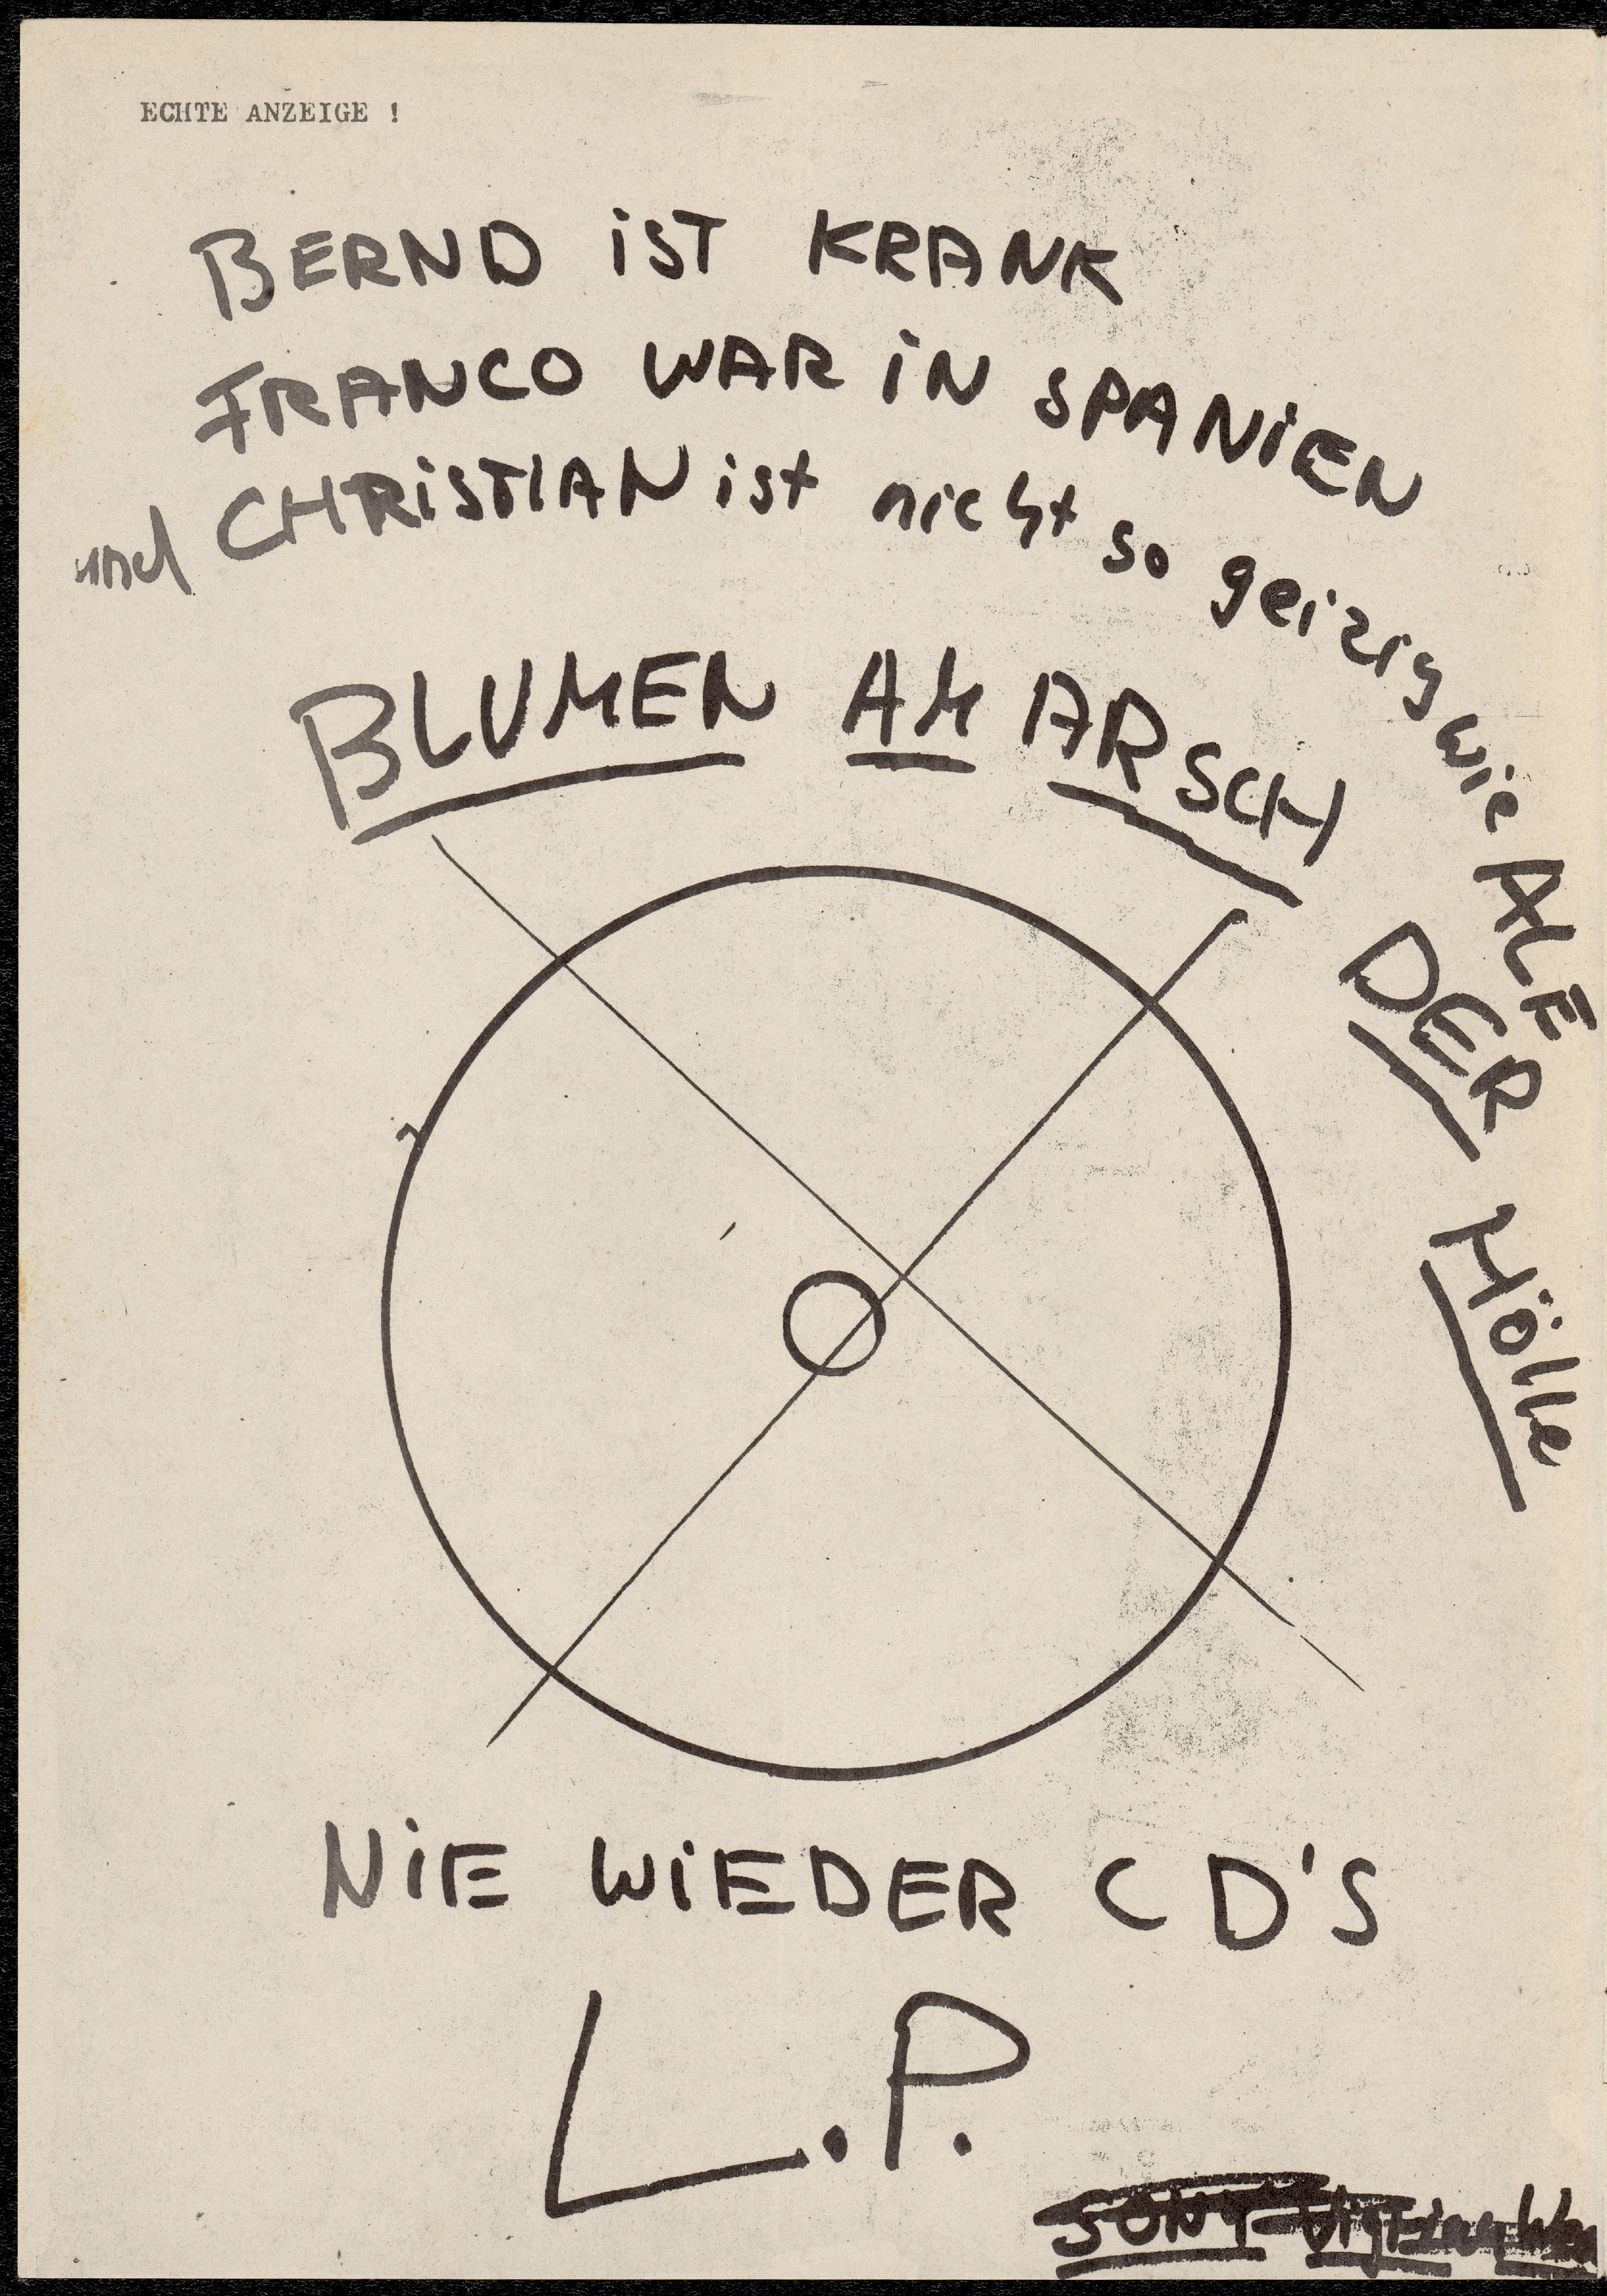 ECHTE ANZEIGE !
BERND iST KRANK
FRANCO WAR iN SPANiEN
und CHRiSTIAN ist nicht so geizig wie ALE
BLUMEN AM ARSCH DER Hölle
NiE WiEDER CD'S
L.P.
SONY